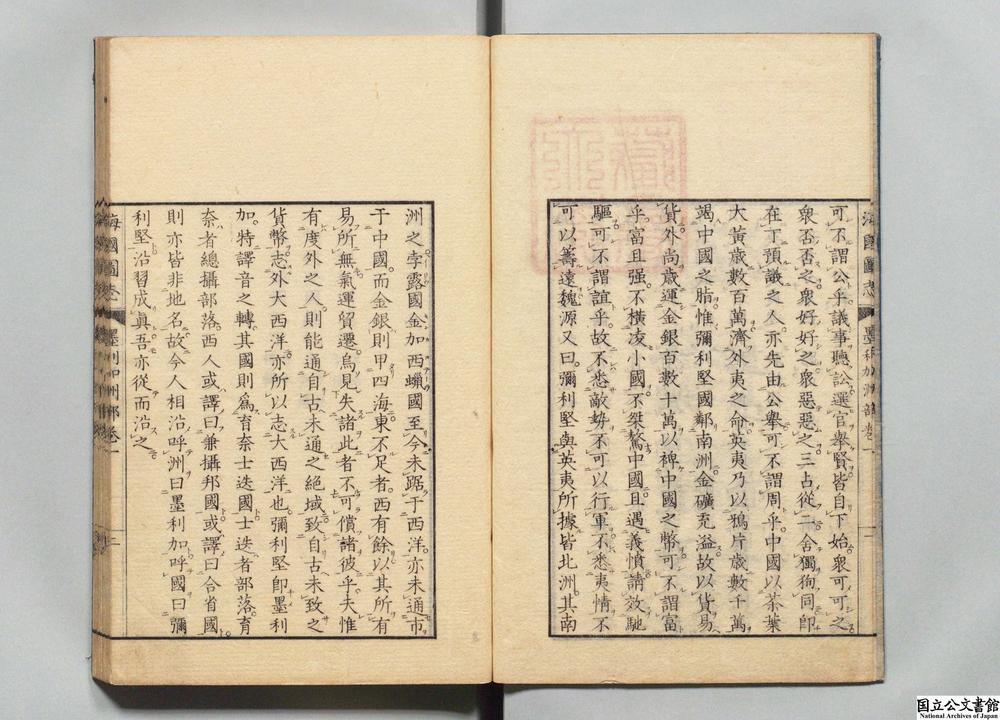 可不謂公乎議事聽訟選官擧賢皆自下始。衆可可之
衆否否之衆好好之衆惡惡之三占從二舍獨狥同即
在下預議之人亦先由公擧可不謂周乎。中國以茶葉
大黃歲數百萬濟外夷之命。英夷乃以鴉片歲數千萬
竭中國之脂。惟彌利堅國鄰南洲金礦充溢故以貨易
貨外尚歲運金銀百數十萬以裨中國之幣可不謂富
乎。富且强不橫凌小國不桀驁中國且遇義憤請效馳
驅可不謂誼乎。故不悉敵勢不可以行軍不悉夷情不
可以籌遠魏源又曰。彌利堅與英夷所據皆北洲。其南
洲之孛露國金加西蠟國至今未踞于西洋。亦未通市
于中國而金銀則甲四海。東不足者。西有餘以其所有
易所無氣運貿遷。烏見失諸此者不可償諸彼乎。夫惟
有度外之人則能通自古未通之絕域致自古未致之
貨幣志外大西洋亦所以志大西洋也。彌利堅即墨利
加。特譯音之轉其國則爲育奈士迭國士迭者部落。育
奈者總攝部落。西人或譯曰兼攝邦國或譯曰合省國。
則亦皆非地名。故今人相沿呼洲曰墨利加呼國曰彌
利堅沿習成眞。吾亦從而沿之
海國圖志
墨利加洲部卷一
國立公文書館
National Archives of Japan